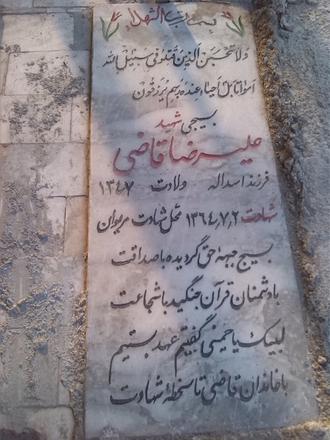 بسم رب الشهداء
ولا تحسبن الذین قتلوا فی سبیل الله
امواتا بل احیاء عند ربهم یرزقون
بسیجی شهید
علیرضا قاضی
فرزند اسداله ولادت ۱۳۴۷
شهادت ۱۳۶۴,۷,۲ محل شهادت مریوان
بسیج جبهه حق گردیده با صداقت
با دشمنان قرآن جنگید با شجاعت
لبیک یا خمینی گفتیم عهد بستیم
با خاندان قاضی تا لحظه شهادت